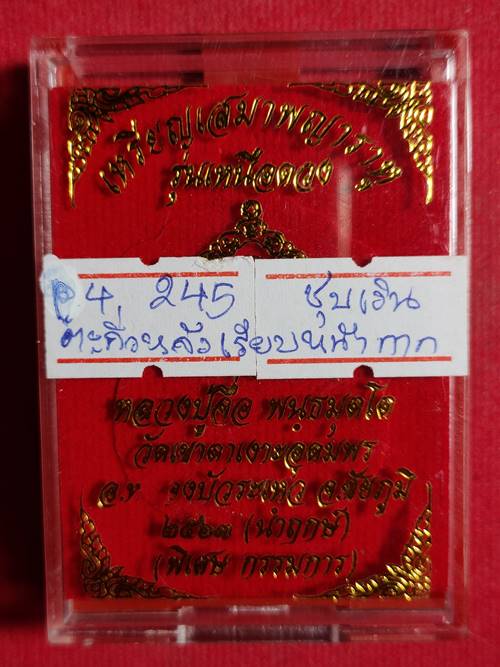 เหรียญเสมาพญาราหู
รุ่นเหนือดวง
P4 245 ชุบเงิน
ตะกั่วหลังเรียบหน้ากาก
หลวงปู่สือ พนฺธมุตโต
วัดเขาตาเงาะอุดมพร
อ.ห งบัวระเหว จ.ชัยภูมิ
(นำฤกษ์)
(พิเศษ กรรมการ)